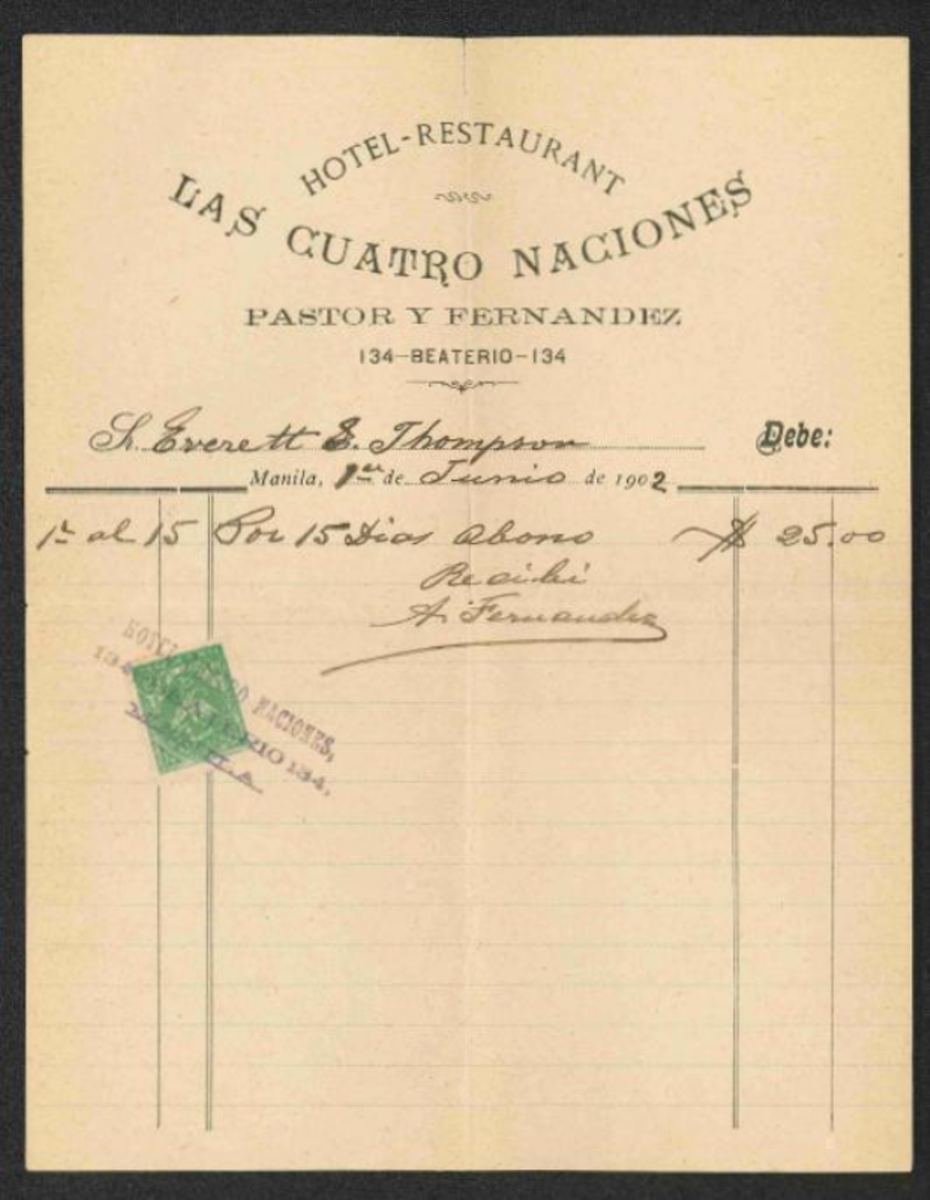 HOTEL-RESTAURANT
LAS CUATRO NACIONES
PASTOR Y FERNANDEZ
134-BEATERIO-134
Sr. Everett E. Thompson Debe:
Manila, 1er de Junio de 1902
1º al 15 Por 15 Dias abono $ 25.00
Recibi
A. Fernandez
HOTEL NACIONES,
134 134,